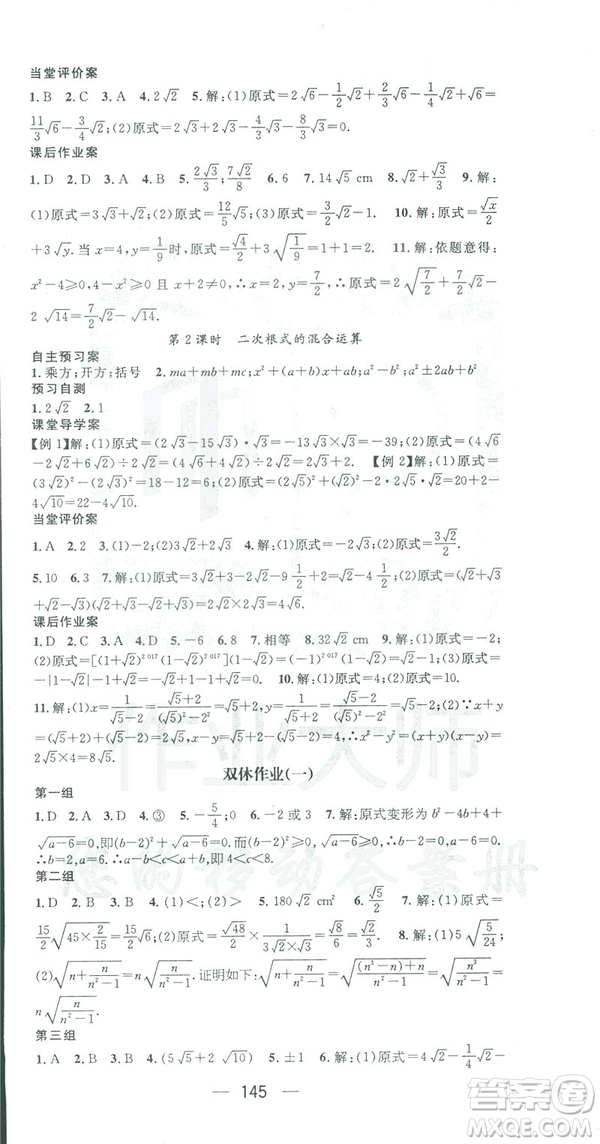 当堂评价案
1.B 2.C 3.A 4.2√2 5.解:(1)原式=2√6-1/2√2+1/2√2+5/3√6=
11/3√6-1/2√6;(2)原式=2√2+√2-3√2=0.
课后作业案
1.D 2.D 3.A 4.B 5.2√3/3;7√2/8 6.6 7.14√5 cm 8.3 9.解:
(1)原式=3√3+2√3=5√3;(2)原式=3/2√2-√2. 10.解:原式=√x/2
+3√y.当x=4,y=1/9时,原式=√4/2+3√(1/9)=2. 11.解:依题意得:
x²-4≥0,4-x²≥0且x+2≠0.∴x=2,y=7/2,∴原式=2√(7/2)+2√(7/2)=
√14+√14=2√14.
第2课时 二次根式的混合运算
自主预习案
1.乘方;开方;括号 2.ma+mb+mc;x²+(a+b)x+ab;a²-b²;a²±2ab+b²
预习自测
1.2√2 2.1
课堂导学案
【例1】解:(1)原式=(2√3-15√3)·√3=-13√3×√3=-39;(2)原式=(4√6
-4√2+6√2)÷2√2=(4√6+2√2)÷2√2=2√3+1. 【例2】解:(1)原式=
(3√2)²-(2√3)²=18-12=6;(2)原式=(2√5)²-4√10+(√2)²=20+2
-4√10=22-4√10.
当堂评价案
1.A 2.2 3.(1)-2;(2)√2+√3 4.解:(1)原式=6;(2)原式=3√2/2.
5.10 6.3 7.解:(1)原式=6-4√3/3+√3=6-√3/3;(2)原式=√2/2+2+√2/2
-(√3+√2)(√3-√2)=√2+2-(3-2)=√2+1.
课后作业案
1.D 2.C 3.A 4.A 5.-6 6.8 7.相等 8.32√2 9.解:(1)原式=-2;
(2)原式=[(1+√2)²⁰¹⁷(1-√2)²⁰¹⁷](1-√2)-(1-√2)²=(-1)²⁰¹⁷(1-√2)
-|1-√2|=-1+√2+1-√2=0. 10.解:(1)原式=-4√2;(2)原式=4.
11.解:(1)∵x=1/(√5-2)=(√5+2)/((√5)²-2²)=√5+2,∴x=√5+2;(2)∵x+y
=1/(√5-2)+1/(√5+2)=(√5+2)/((√5)²-2²)+(√5-2)/((√5)²-2²)=√5+2+√5-2=2√5,∴x+y=
2√5.
双休作业(一)
第一组
1.D 2.D 3.A 4.③ 5.-1 6.-2或3 7.解:原式变形为(b-2)²+4+
√(a-6)=4,∴(b-2)²+√(a-6)=0.∵(b-2)²≥0,√(a-6)≥0,∴b-2=0,√(a-6)=0.
∴b=2,a=6.∵a-b<c<a+b,∴4<c<8.
第二组
1.D 2.B 3.A 4.(1)<;(2)> 5.180√2 cm² 6.√5/2 7.解:(1)原式=
15/2√(45×2/15)=15/2√6;(2)原式=√48/8×√2/√12=√8/6=√2/3. 8.解:(1)5√(5/24);
(2)√(n+n/(n²-1))=n√(n/(n²-1)).证明如下:√(n+n/(n²-1))=√(((n³-n)+n)/(n²-1))=
n√(n/(n²-1)).
第三组
1.A 2.B 3.B 4.(1)√3-√2;(2)√10-3 5.±1 6.解:(1)原式=4√3-
145
作业大师
您的移动答案册
答案圈
MXQE.COM